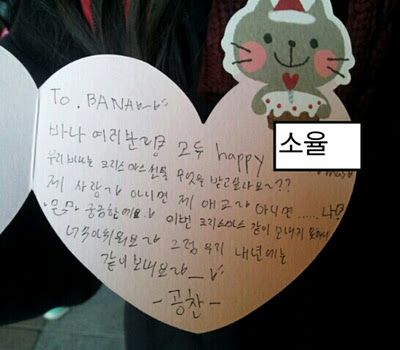 To. BANA
소율
바나 여러분랑 모두 happy
우리 바나는 크리스마스 선물 무엇을 받고싶나요~??
제 사랑? 아니면 제 애교? 아니면 ......나?
궁금한데요 이번 크리스마스 같이 보내지 못하니
너무 아쉬워요 그럼 우리 내년에는
같이 보내요
-공찬-